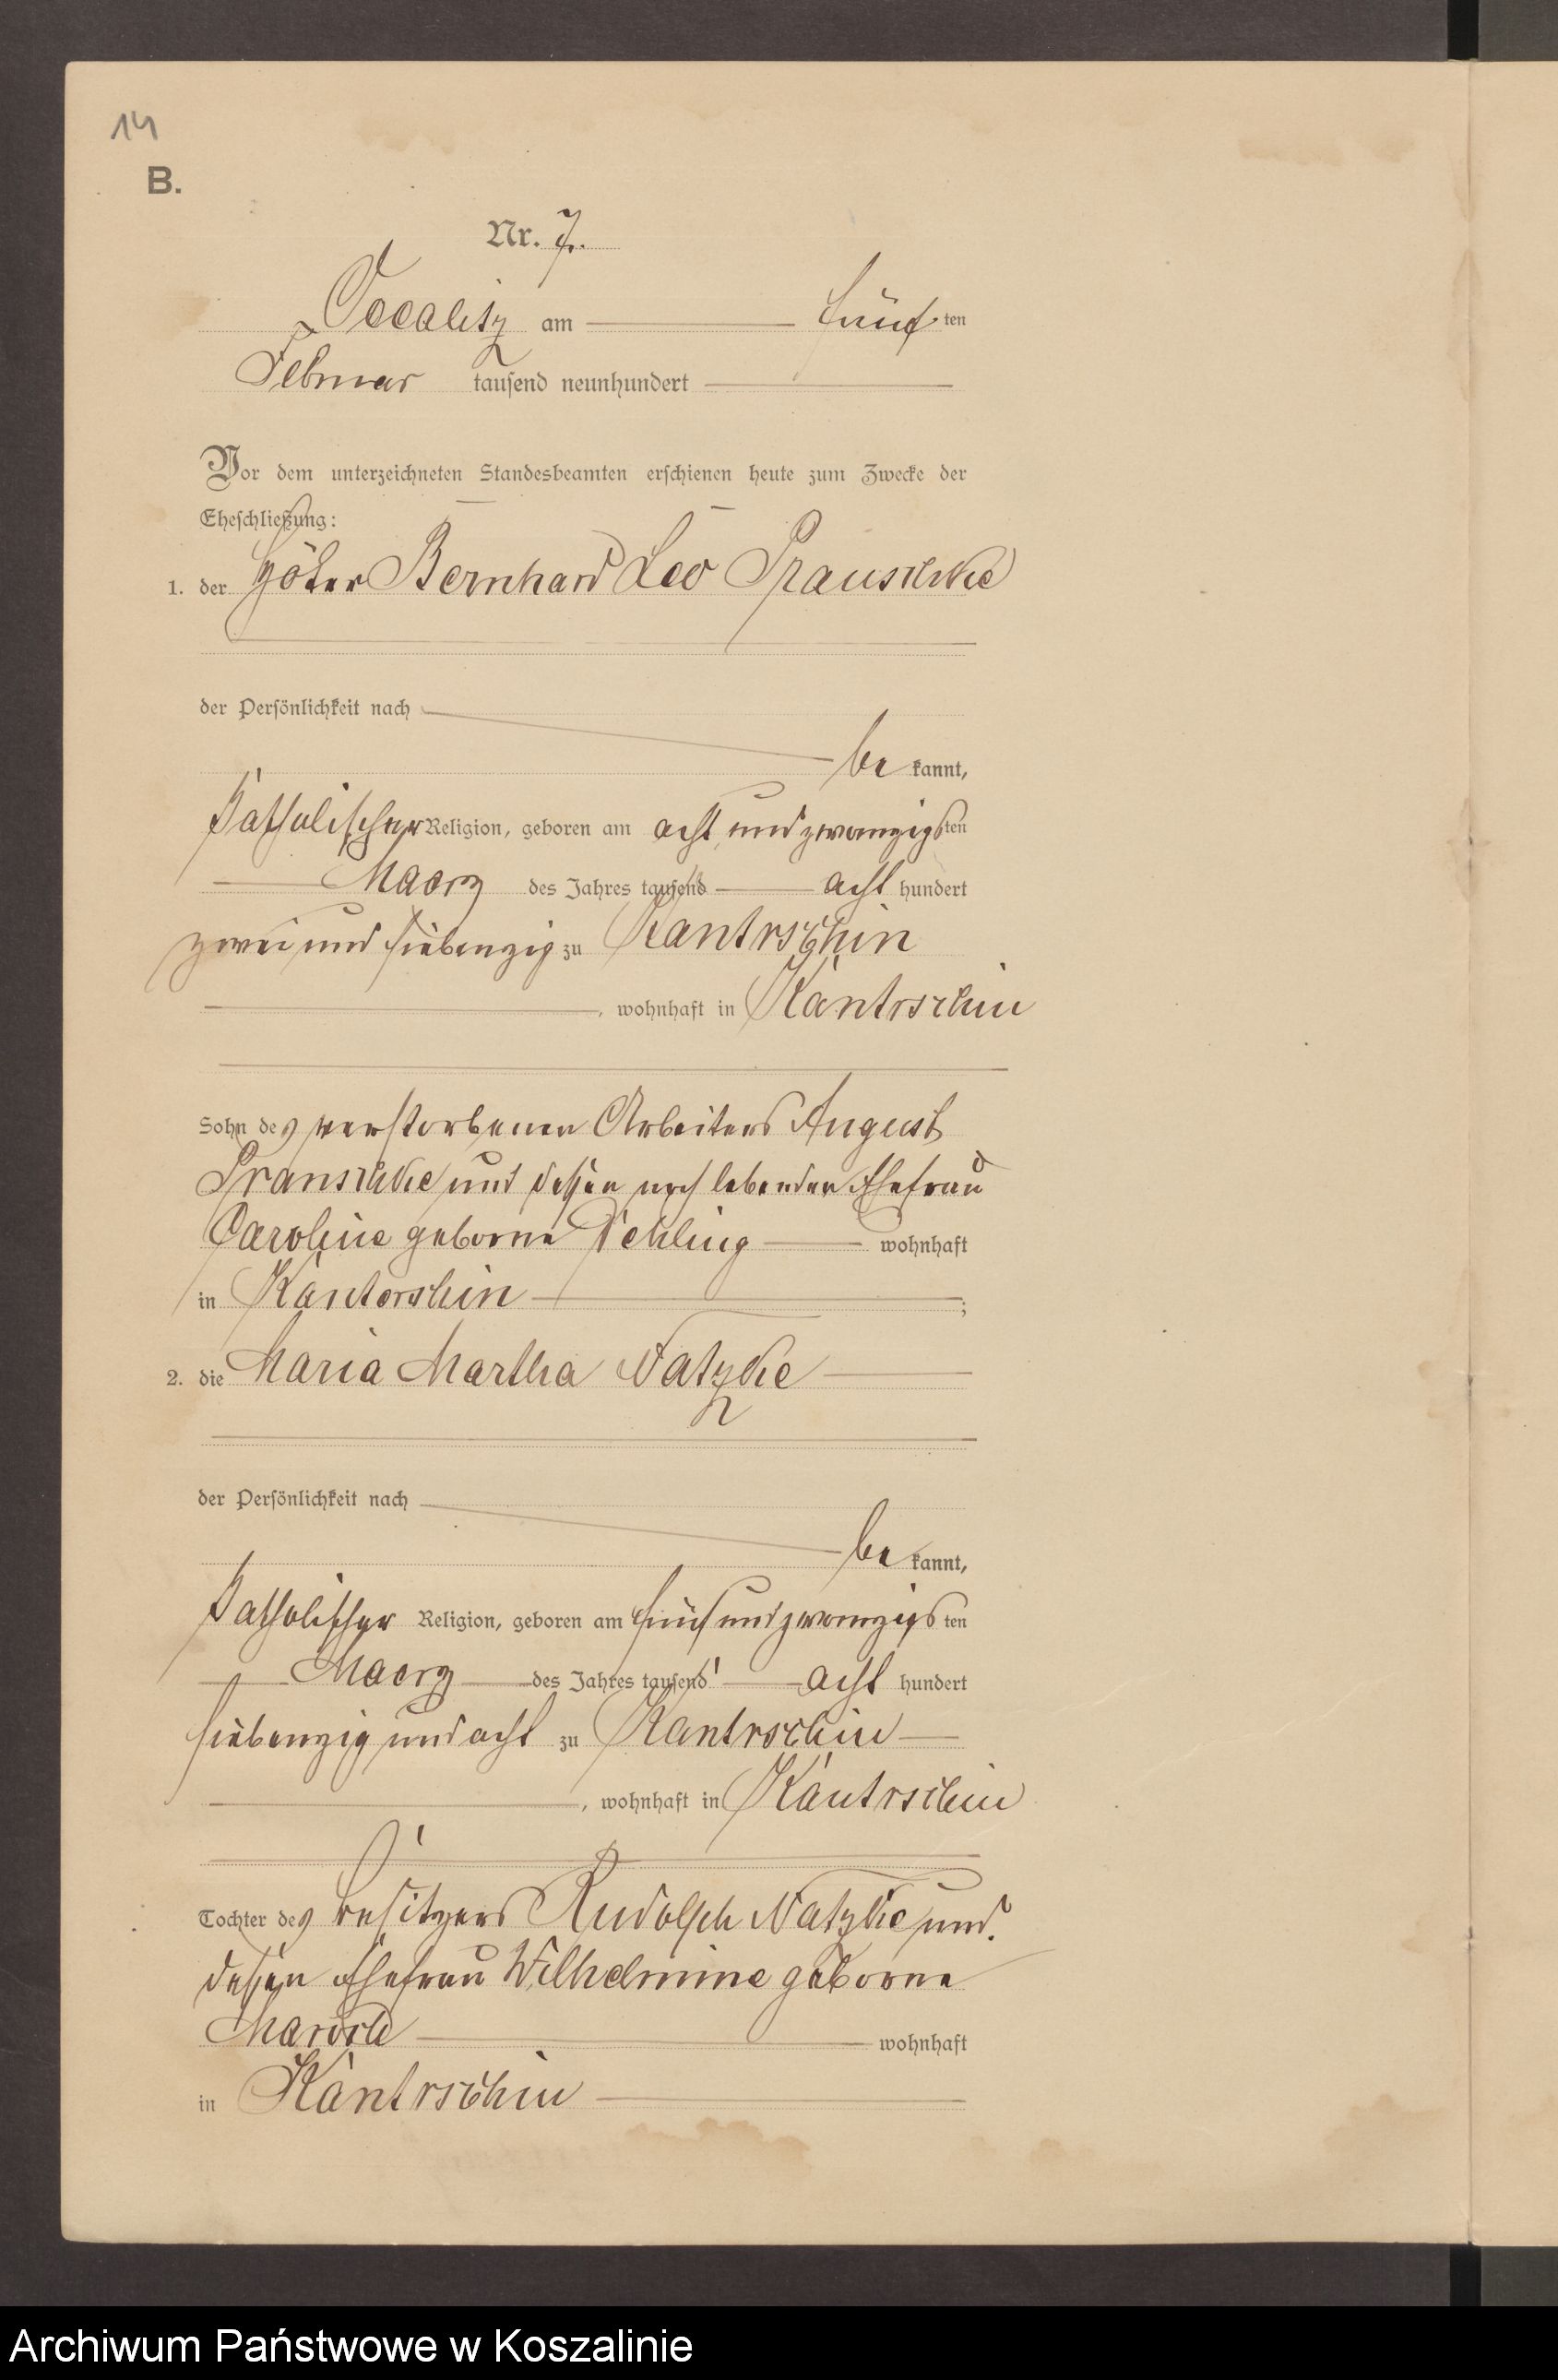 14
B.
Nr. 7.
Occalitz am fünften
Februar tausend neunhundert
Vor dem unterzeichneten Standesbeamten erschienen heute zum Zwecke der
Eheschließung:
1. der Bernhard Leo
der Persönlichkeit nach
bekannt,
katholischer Religion, geboren am acht und zwanzigsten
Maerz des Jahres tausend acht hundert
zwei und siebenzig zu Kantrschin
, wohnhaft in Kantrschin
Sohn des verstorbenen Arbeiters August
und dessen noch lebenden Ehefrau
Caroline geborne wohnhaft
in Kantorschin ;
2. die Maria Martha Natzke
der Persönlichkeit nach
bekannt,
katholischer Religion, geboren am fünf und zwanzigsten
Maerz des Jahres tausend acht hundert
siebenzig und acht zu Kantrschin
, wohnhaft in Kantrschin
Tochter des Besitzers Rudolph Natzke und
dessen Ehefrau Wilhelmine geborne
wohnhaft
in Kantrschin
Archiwum Państwowe w Koszalinie